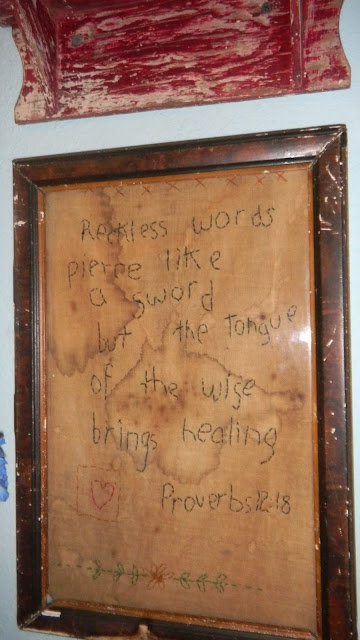 Reckless words
pierce like
a sword
but the tongue
of the wise
brings healing
Proverbs 12:18